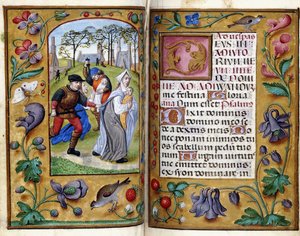 AD VESPAS
EVS IN
ADIVTO
RIVM ME
VM INTE
NE DOM
NE AD ADIVVANDVM
me festina Gloria
ana Dum esset Psalmus
Dixit dominus
domino meo se
de a dextris meis Do
nec ponam inimicos tu
os scabellum pedū tuo
rum Virgam virtutis
tue emittet dominus
ex sion dominare in